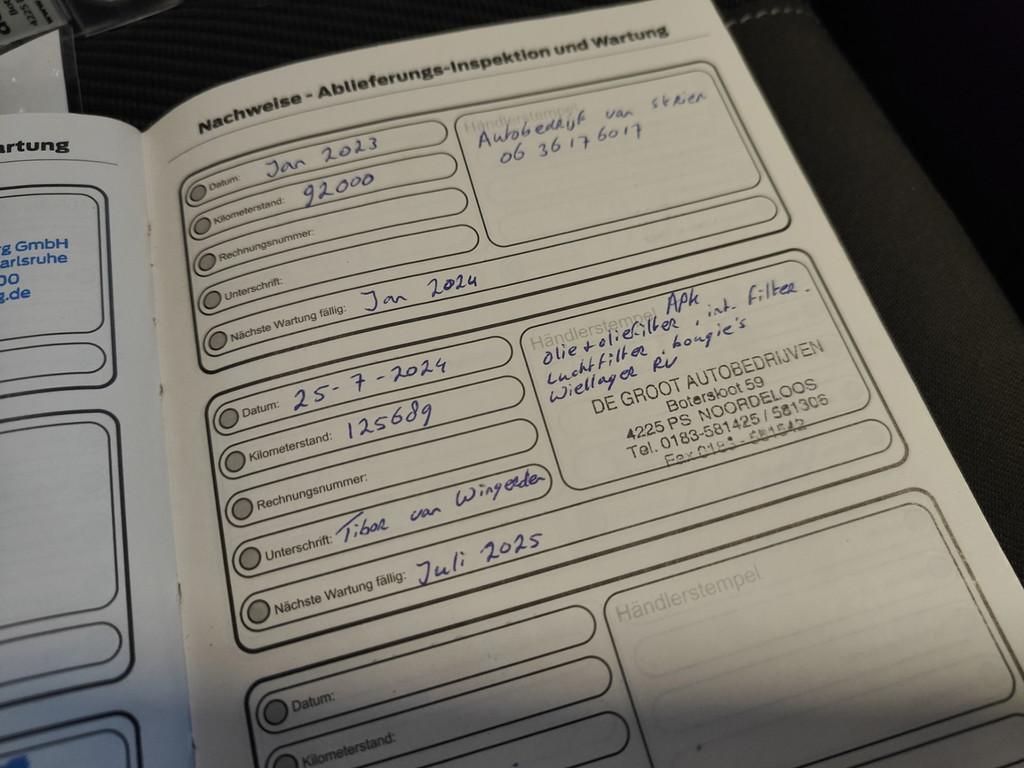 artung
g GmbH
arlsruhe
00
g.de
Nachweise - Ablieferungs-Inspektion und Wartung
Datum: Jan 2023
Kilometerstand: 92000
Rechnungsnummer:
Unterschrift:
Nächste Wartung fällig: Jan 2024
Händlerstempel
Autobedrijf van
06 36176017
Datum: 25-7-2024
Kilometerstand: 125689
Rechnungsnummer:
Unterschrift: Tibor van Wingerden
Nächste Wartung fällig: Juli 2025
Händlerstempel APK
olie + oliefilter, int. filter.
Luchtfilter, bougie's
Wiellager RV
DE GROOT AUTOBEDRIJVEN
Botersloot 59
4225 PS NOORDELOOS
Tel. 0183-581425 / 581306
Fax 0183 - 581542
Datum:
Kilometerstand:
Händlerstempel